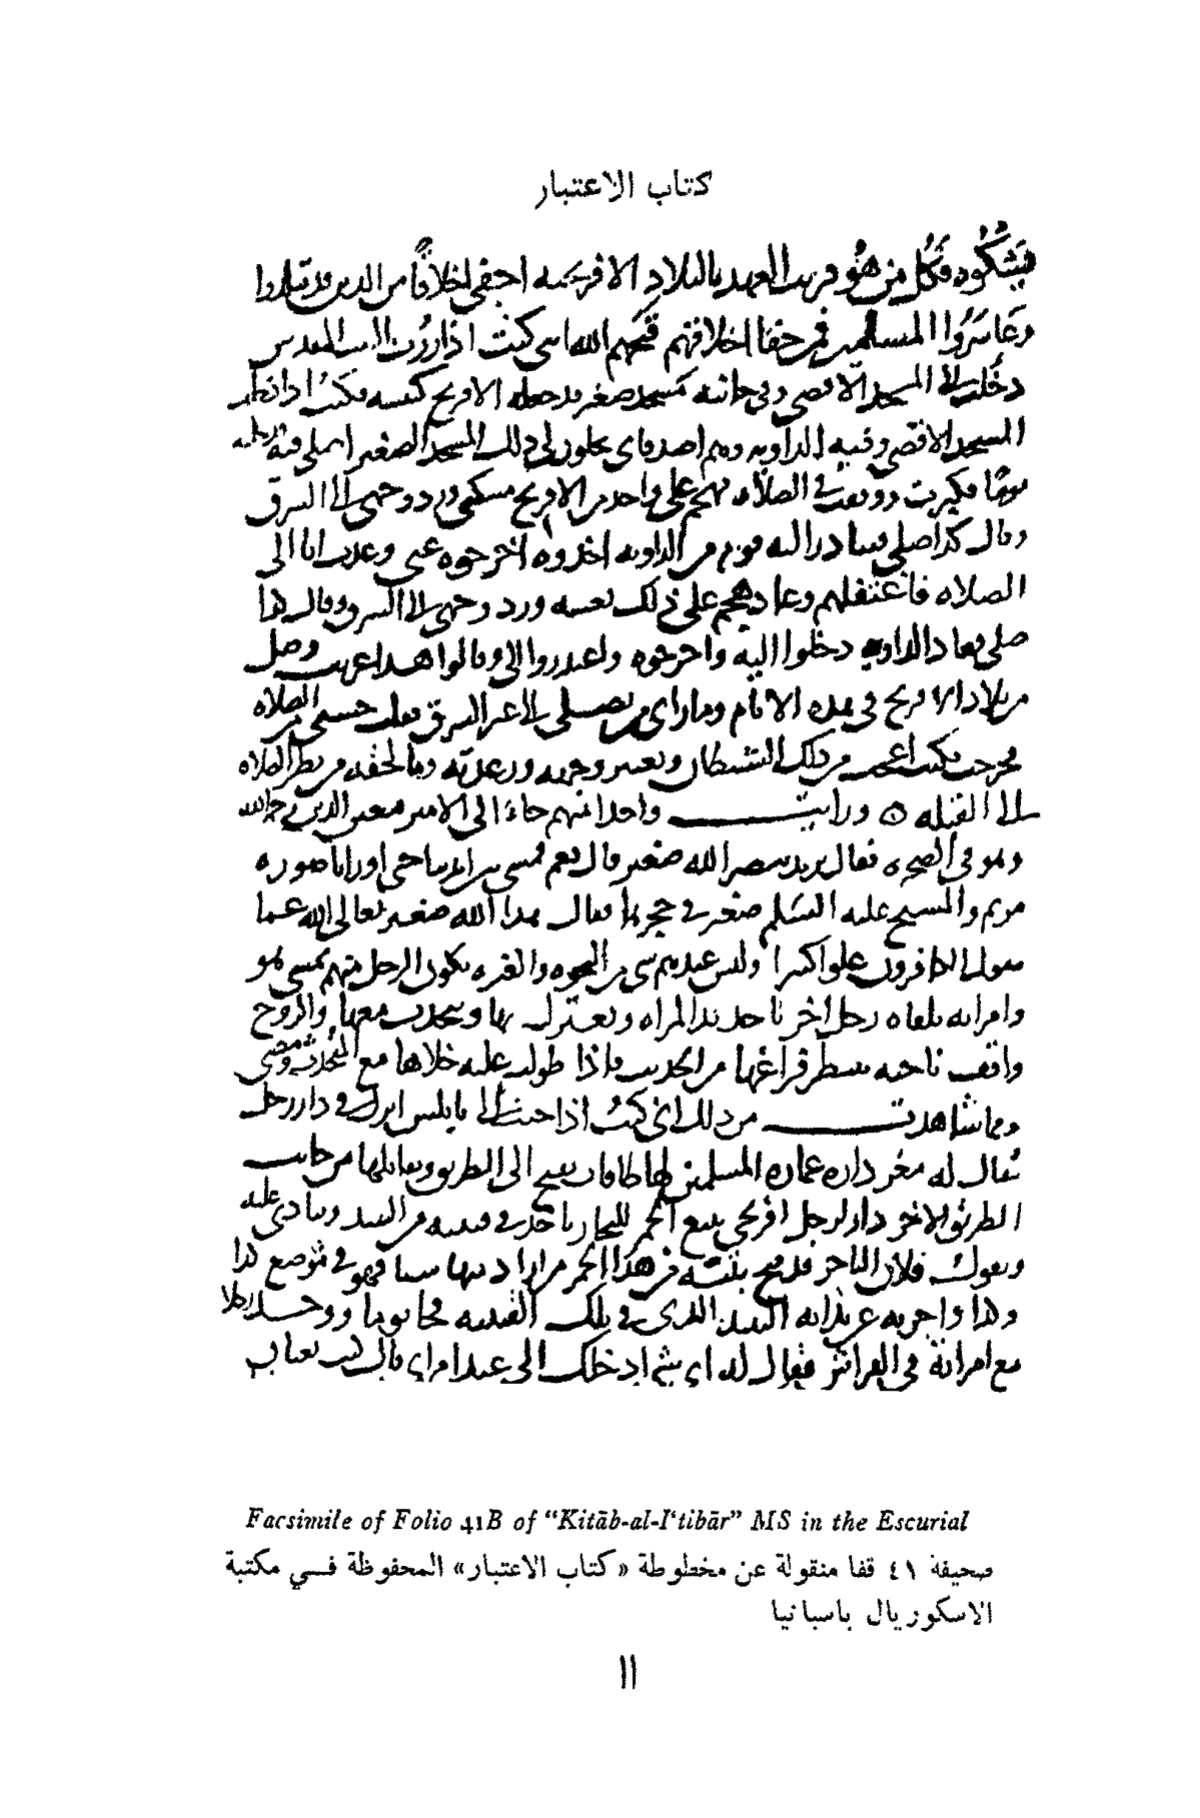 كتاب الاعتبار
يشكوه فكل من هو قريب العهد بالبلاد الافرنجيه اجفى اخلاقًا من الذين قد تبلدوا
وعاشروا المسلمين فمن جفا اخلاقهم قبحهم الله انني كنت اذا زرت البيت المقدس
دخلت الى المسجد الاقصى وفي جانبه مسجد صغير قد جعله الافرنج كنيسه فكنت اذا دخلت
المسجد الاقصى وفيه الداويه وهم اصدقاي يخلون لي ذلك المسجد الصغير اصلي فيه فدخلته
يومًا فكبرت ووقفت في الصلاه فهجم علي واحد من الافرنج مسكني ورد وجهي الى الشرق
وقال كذا صلي فتبادر اليه قوم من الداويه اخذوه اخرجوه عني وعدت انا الى
الصلاه فاغتفلهم وعاد هجم علي ذلك بعينه ورد وجهي الى الشرق وقال كذا
صلي فعاد الداويه دخلوا اليه واخرجوه واعتذروا الي وقالوا هذا غريب وصل
من بلاد الافرنج في هذه الايام وما راى من يصلي الى غير الشرق فقلت حسبي من الصلاه
فخرجت فكنت اعجب من ذلك الشيطان وتغيير وجهه ورعدته وما لحقه من نظر الصلاه
الى القبله ورايت واحدا منهم جاء الى الامير معين الدين رحمه الله
وهو في الصخره فقال تريد تبصر الله صغير قال نعم فمشى بين ايدينا حتى اورانا صوره
مريم والمسيح عليه السلم صغير في حجرها فقال هذا الله صغير تعالى الله عما
يقول الكافرون علوا كبيرا وليس عندهم شي من النخوه والغيره يكون الرجل منهم يمشي هو
وامراته يلقاه رجل اخر ياخذ المراه ويعتزل بها ويتحدث معها والزوج
واقف ناحيه ينتظر فراغها من الحديث فاذا طولت عليه خلاها مع المتحدث ومضى
ومما شاهدت من ذلك اني كنت اذا جيت الى نابلس انزل في دار رجل
يقال له معز داره عماره المسلمين لها طاقات تفتح الى الطريق ويقابلها من جانب
الطريق الاخر دار لرجل افرنجي يبيع الخمر للتجار ياخذ في قنينه من النبيذ وينادي عليه
ويقول فلان التاجر قد فتح بتيه من هذا الخمر من اراد منها شيا فهو في موضع كذا
وكذا واجرته عن ندايه النبيذ الذي في تلك القنينه فجا يوما ووجد رجلا
مع امراته في الفراش فقال له اي شي ادخلك الى عند امراتي قال كنت تعبان
Facsimile of Folio 41B of “Kitāb-al-I‘tibār” MS in the Escurial
صحيفة ٤١ قفا منقولة عن مخطوطة «كتاب الاعتبار» المحفوظة فــي مكتبة
الاسكوريال باسبانيا
١١